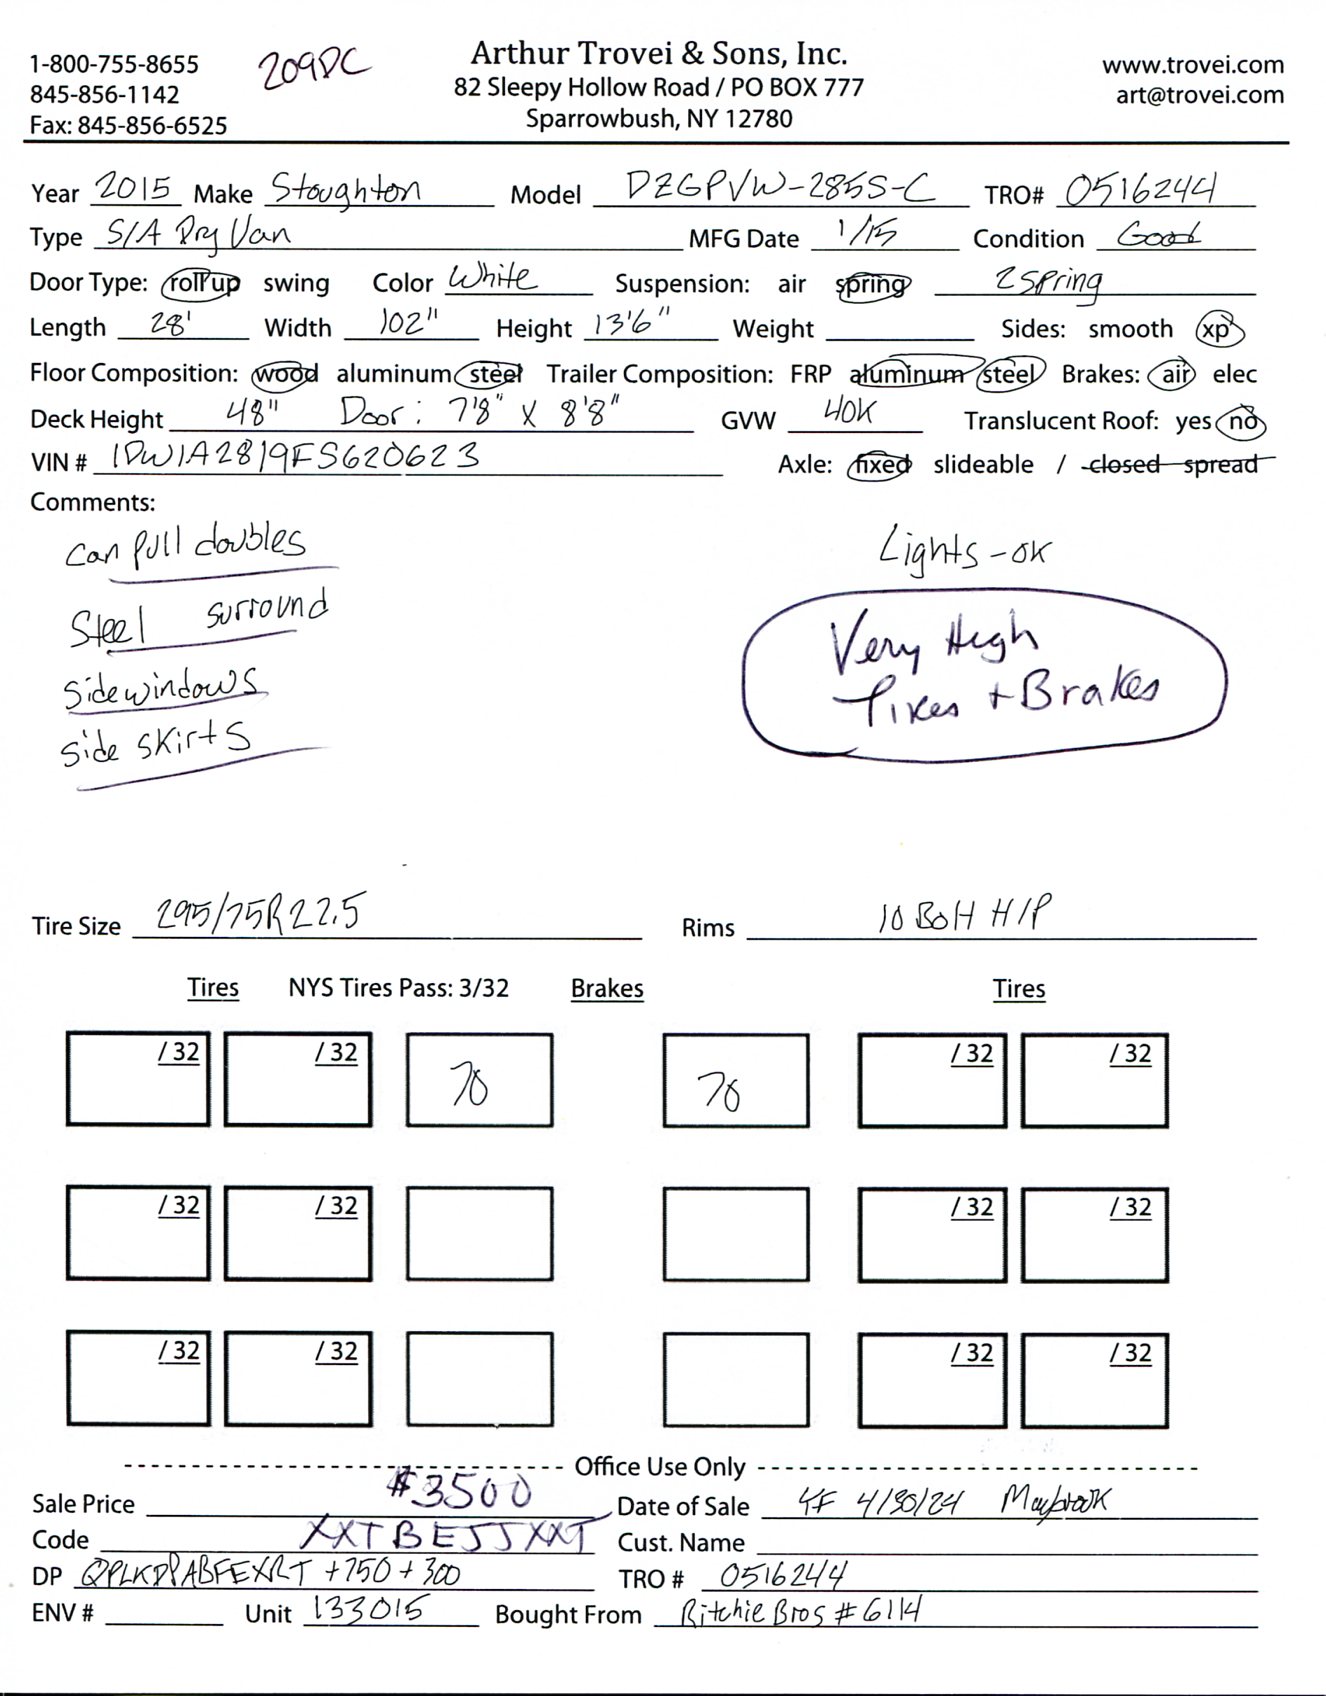 1-800-755-8655
845-856-1142
Fax: 845-856-6525
209DC
Arthur Trovei & Sons, Inc.
82 Sleepy Hollow Road / PO BOX 777
Sparrowbush, NY 12780
www.trovei.com
art@trovei.com
Year 2015 Make Stoughton Model DZGPVW-285S-C TRO# 0516244
Type S/A Dry Van MFG Date 1/15 Condition Good
Door Type: roll up swing Color White Suspension: air spring 2 spring
Length 28' Width 102" Height 13'6" Weight Sides: smooth xp
Floor Composition: wood aluminum steel Trailer Composition: FRP aluminum steel Brakes: air elec
Deck Height 48" Door: 7'8" X 8'8" GVW 40K Translucent Roof: yes no
VIN # 1DW1A2819FS620623 Axle: fixed slideable / closed spread
Comments:
can pull doubles
Steel surround
sidewindows
side skirts
Lights - ok
Very High
Tires + Brakes
Tire Size 295/75R22.5 Rims 10 BoH H/P
Tires NYS Tires Pass: 3/32 Brakes Tires
/32 /32 70 70 /32 /32
/32 /32 /32 /32
/32 /32 /32 /32
Office Use Only
Sale Price $3500 Date of Sale YF 4/30/24 Maybrook
Code XXTBEJJXXT Cust. Name
DP QPLKDPABFEXRT +750+300 TRO # 0516244
ENV # Unit 133015 Bought From Ritchie Bros #6114